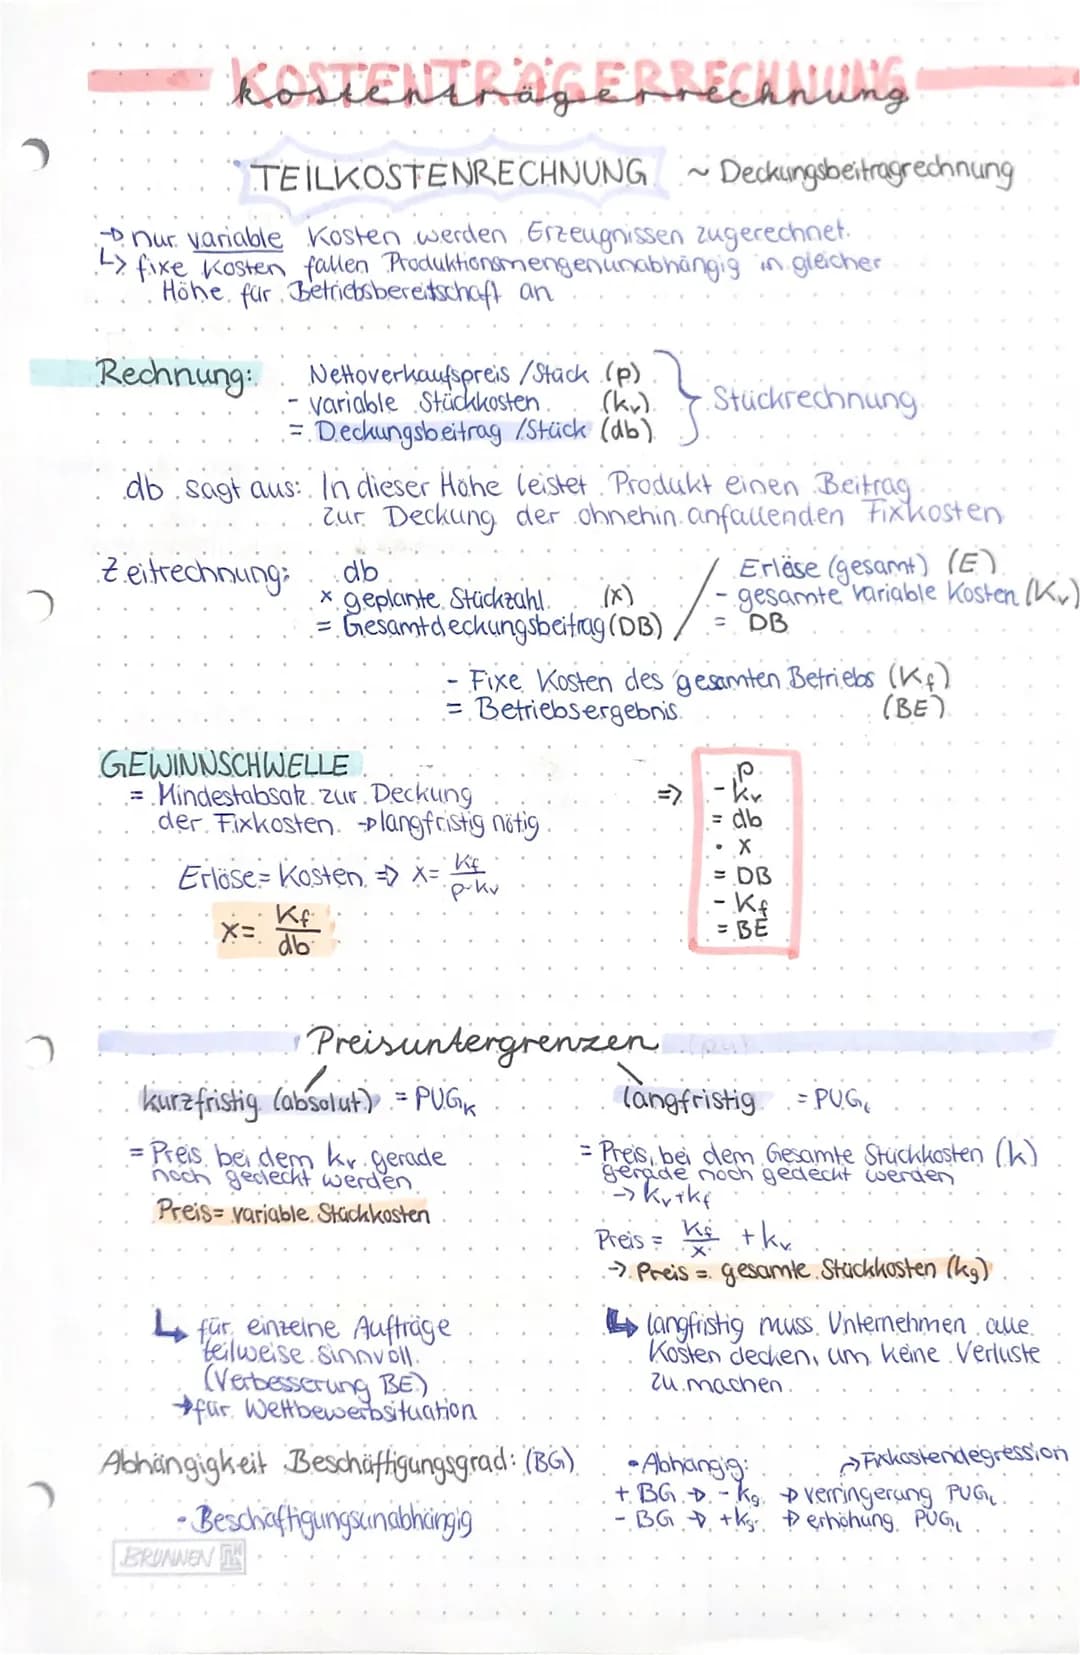 KOSTENTRÄGERRECHNUNG
kostenträgerrechnung
TEILKOSTENRECHNUNG ~ Deckungsbeitragrechnung
→ nur variable Kosten werden Erzeugnissen zugerechnet.
↳ fixe Kosten fallen Produktionsmengenunabhängig in gleicher
Höhe für Betriebsbereitschaft an
Rechnung: Nettoverkaufspreis /Stück (p)
- variable Stückkosten (kv)
= Deckungsbeitrag /Stück (db)
Stückrechnung
db sagt aus: In dieser Höhe leistet Produkt einen Beitrag
zur Deckung der ohnehin anfallenden Fixkosten
Zeitrechnung: db / Erlöse (gesamt) (E)
× geplante Stückzahl (x) - gesamte variable Kosten (Kv)
= Gesamtdeckungsbeitrag (DB) / = DB
- Fixe Kosten des gesamten Betriebs (Kf)
= Betriebsergebnis (BE)
GEWINNSCHWELLE
= Mindestabsatz zur Deckung
der Fixkosten → langfristig nötig
Erlöse = Kosten ⇒ x = Kf / p-kv
x = Kf / db
⇒ p
- kv
= db
· x
= DB
- Kf
= BE
Preisuntergrenzen
kurzfristig (absolut) = PUGK
= Preis, bei dem kv gerade
noch gedeckt werden
Preis = variable Stückkosten
↳ für einzelne Aufträge
teilweise sinnvoll
(Verbesserung BE)
→ für Wettbewerbsituation
langfristig = PUGL
= Preis, bei dem Gesamte Stückkosten (k)
gerade noch gedeckt werden
→ kv+kf
Preis = Kf / x + kv
→ Preis = gesamte Stückkosten (kg)
↳ langfristig muss Unternehmen alle
Kosten decken, um keine Verluste
zu machen
Abhängigkeit Beschäftigungsgrad: (BG)
- Beschäftigungsunabhängig
- Abhängig: → Fixkostendegression
+ BG → - kg → verringerung PUGL
- BG → + kg → erhöhung PUGL
BRUNNEN